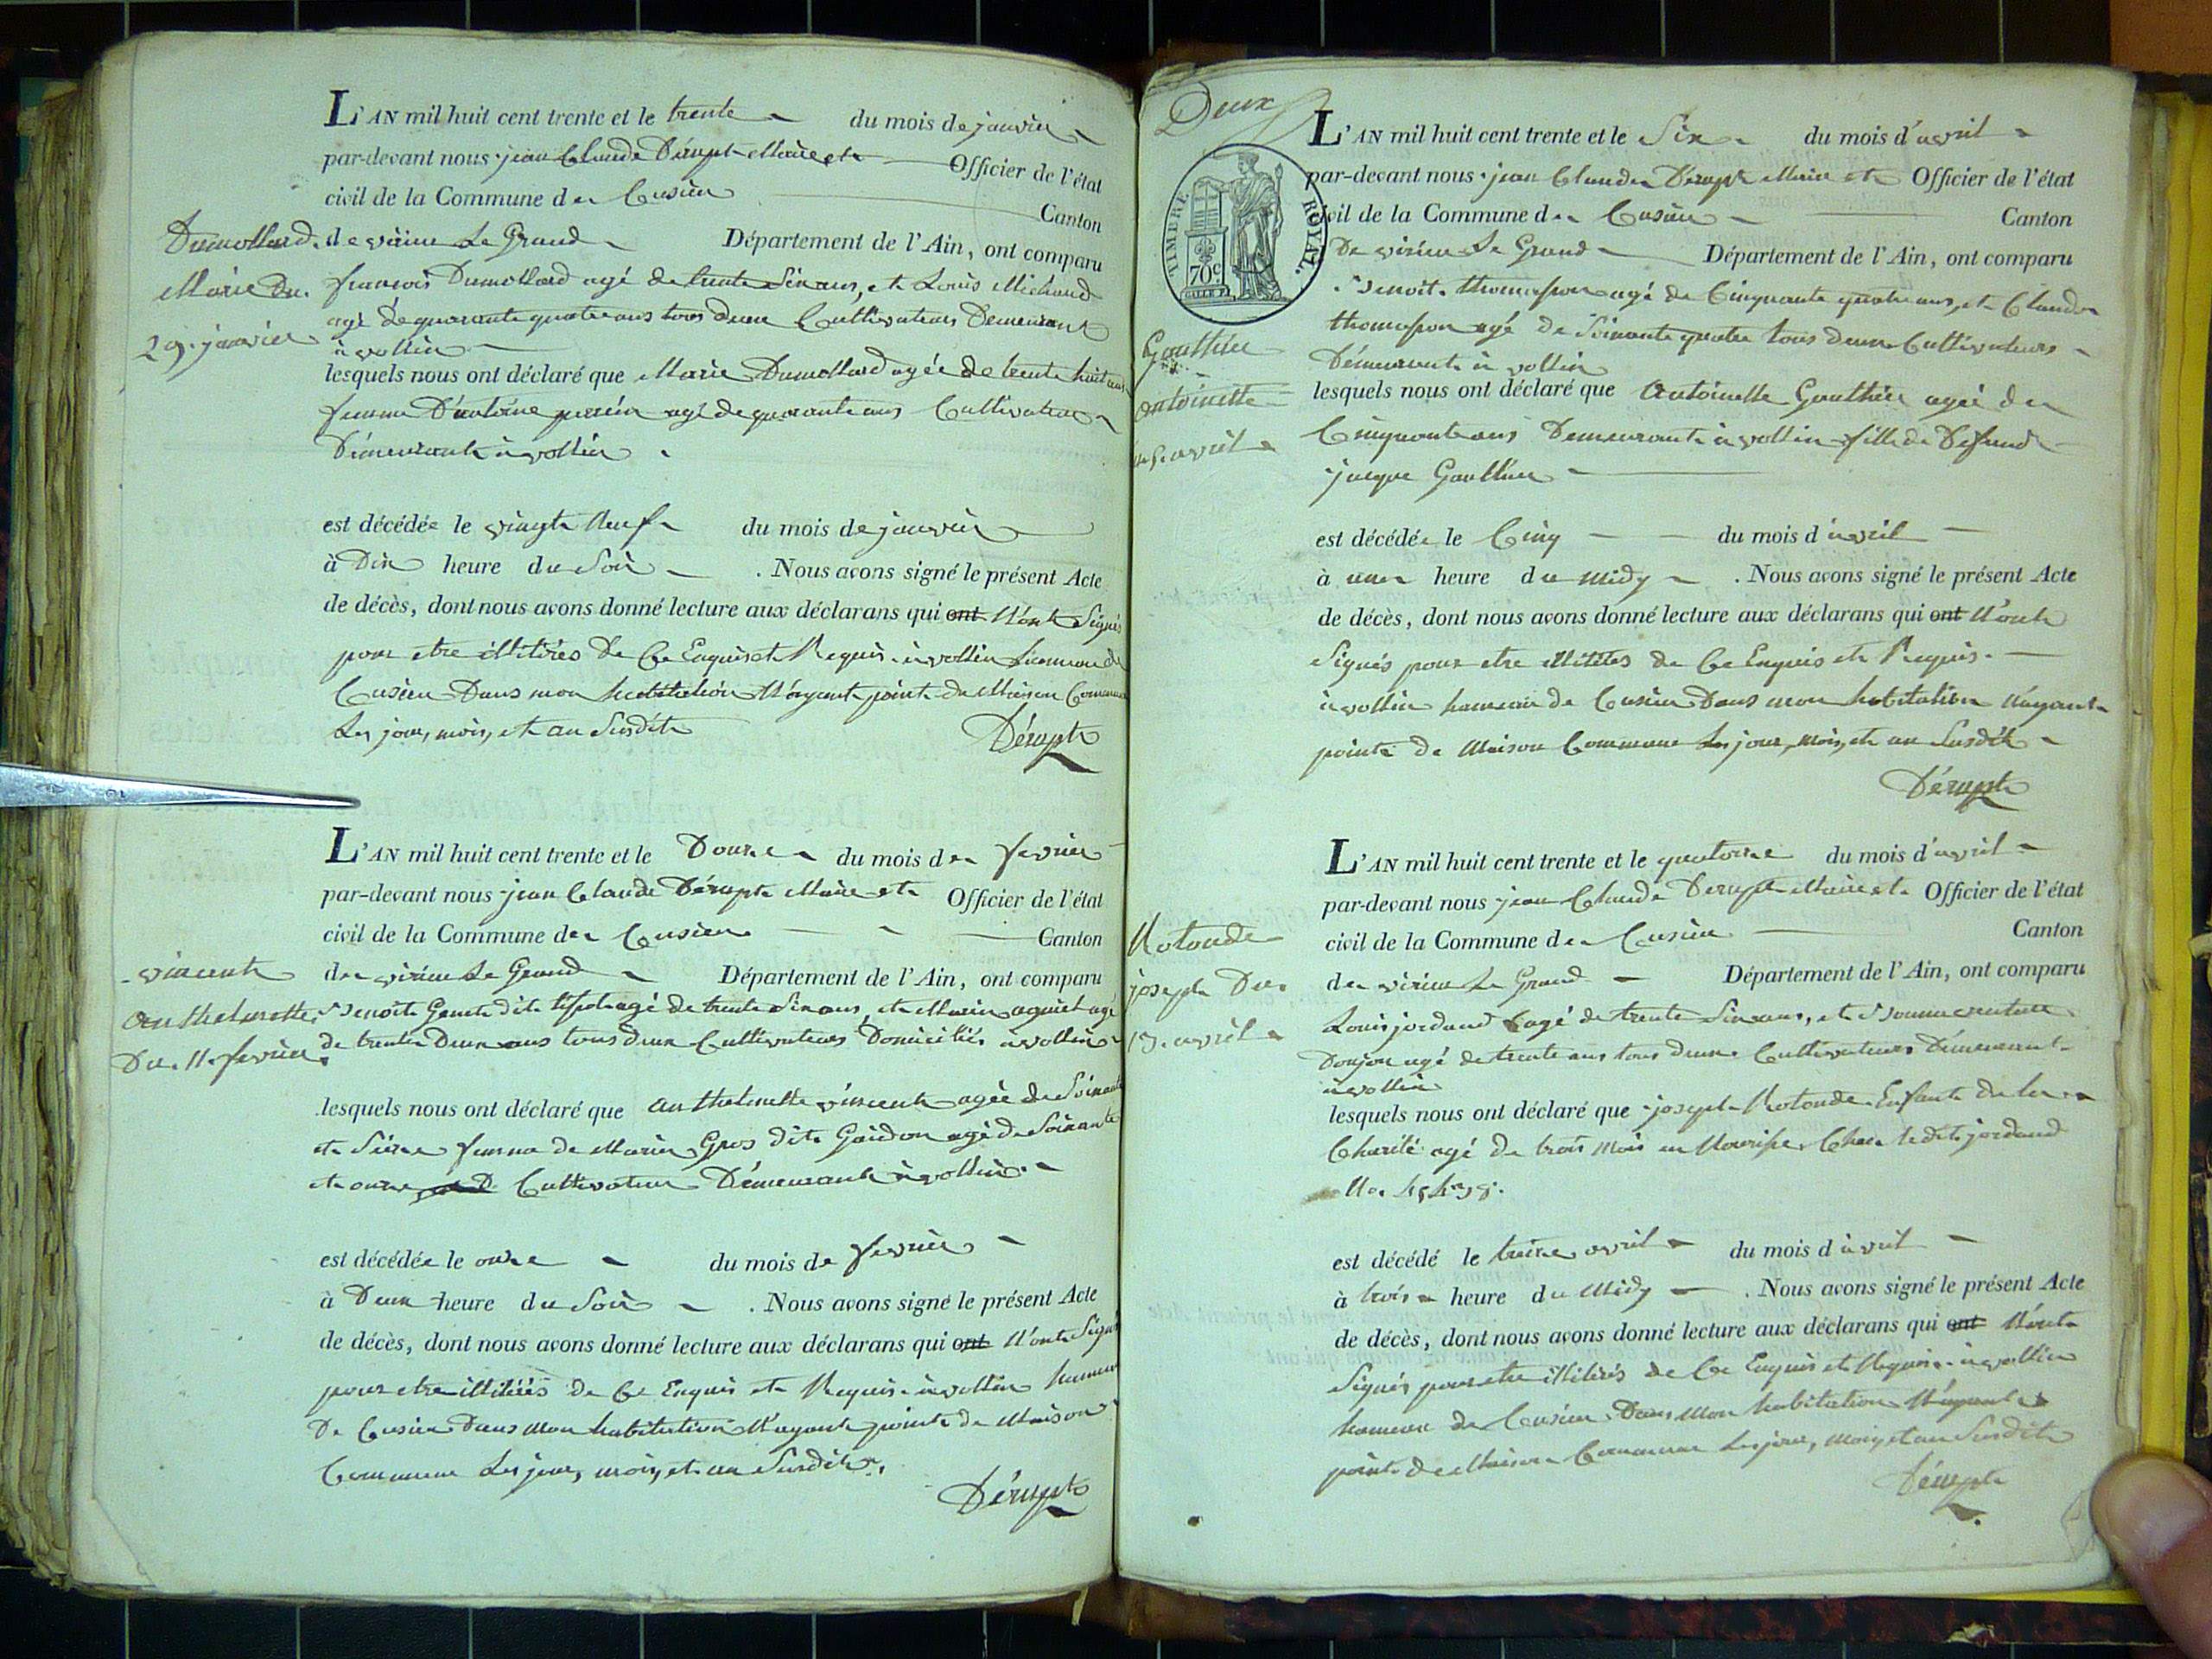 L'AN mil huit cent trente et le trente du mois de janvier
par-devant nous jean Claude Dérupt Maire et Officier de l'état
civil de la Commune de Cusieu
Canton
Dumollard de virieu Le Grand Département de l'Ain, ont comparu
Marie Du françois Dumollard agé de trente Six ans, et Louis Michaud
29. janvier agé de quarante quatre ans tous deux Cultivateurs Demeurant
à vollin
lesquels nous ont déclaré que Marie Dumollard agée de trente huit ans
femme D'antoine agé de quarante ans Cultivateur
Démeurant à vollin
est décédée le vingt Neuf du mois de janvier
à Dix heure du Soir . Nous avons signé le présent Acte
de décès, dont nous avons donné lecture aux déclarans qui ont N'ont Signés
pour etre illitérés De Ce Enquis et Requis. à vollin hameau de
Cusieu Dans mon habitation N'ayant point de Maison Commune
Les jour, mois, et an Susdit
Dérupt
L'AN mil huit cent trente et le Douze du mois de fevrier
par-devant nous jean Claude Dérupt Maire et Officier de l'état
civil de la Commune de Cusieu Canton
vincent de virieu Le Grand Département de l'Ain, ont comparu
Anthelmette Benoit dit agé de trente Six ans, et Marin agé
Du 11 fevrier de trente Deux ans tous deux Cultivateurs Domiciliés à vollin
lesquels nous ont déclaré que Anthelmette vincent agée de Soixante
et Seize femme de Marin Gros dit Goidon agé de Soixante
et onze Cultivateur Démeurant à vollin
est décédée le onze du mois de fevrier
à Deux heure du Soir . Nous avons signé le présent Acte
de décès, dont nous avons donné lecture aux déclarans qui ont N'ont Signé
pour etre illitérés de Ce Enquis et Requis. à vollin hameau
De Cusieu Dans Mon habitation N'ayant point de Maison
Commune Les jour, mois, et an Susdit
Dérupt
Deux
L'AN mil huit cent trente et le Six du mois d'avril
par-devant nous jean Claude Dérupt Maire et Officier de l'état
civil de la Commune de Cusieu Canton
TIMBRE ROYAL.
70c.
De virieu Le Grand Département de l'Ain, ont comparu
Benoit thomasson agé de Cinquante quatre ans, et Claude
thomasson agé de Soixante quatre tous deux Cultivateurs
Gauthier Démeurant à vollin
antoinette lesquels nous ont déclaré que Antoinette Gauthier agée de
5 avril Cinquante ans Demeurante à vollin fille de Defunt
jacque Gauthier
est décédée le Cinq du mois d'avril
à une heure du Midy . Nous avons signé le présent Acte
de décès, dont nous avons donné lecture aux déclarans qui ont N'ont
Signés pour etre illitérés de Ce Enquis et Requis.
à vollin hameau de Cusieu Dans mon habitation N'ayant
point de Maison Commune Les jour, mois, et an Susdit
Dérupt
L'AN mil huit cent trente et le quatorze du mois d'avril
par-devant nous jean Claude Dérupt Maire et Officier de l'état
Rotonde civil de la Commune de Cusieu Canton
joseph Du de virieu Le Grand Département de l'Ain, ont comparu
13. avril Louis jordand agé de trente Six ans, et Bonnaventure
Donjon agé de trente ans tous deux Cultivateurs Démeurant
à vollin
lesquels nous ont déclaré que joseph Rotonde Enfant de la
Charité agé de trois Mois en Nourisse Chez ledit jordand
No.
est décédé le treize avril du mois d'avril
à trois heure du Midy . Nous avons signé le présent Acte
de décès, dont nous avons donné lecture aux déclarans qui ont N'ont
Signés pour etre illitérés de Ce Enquis et Requis. à vollin
hameau de Cusieu Dans Mon habitation N'ayant
point de Maison Commune Les jour, mois, et an Susdit
Dérupt